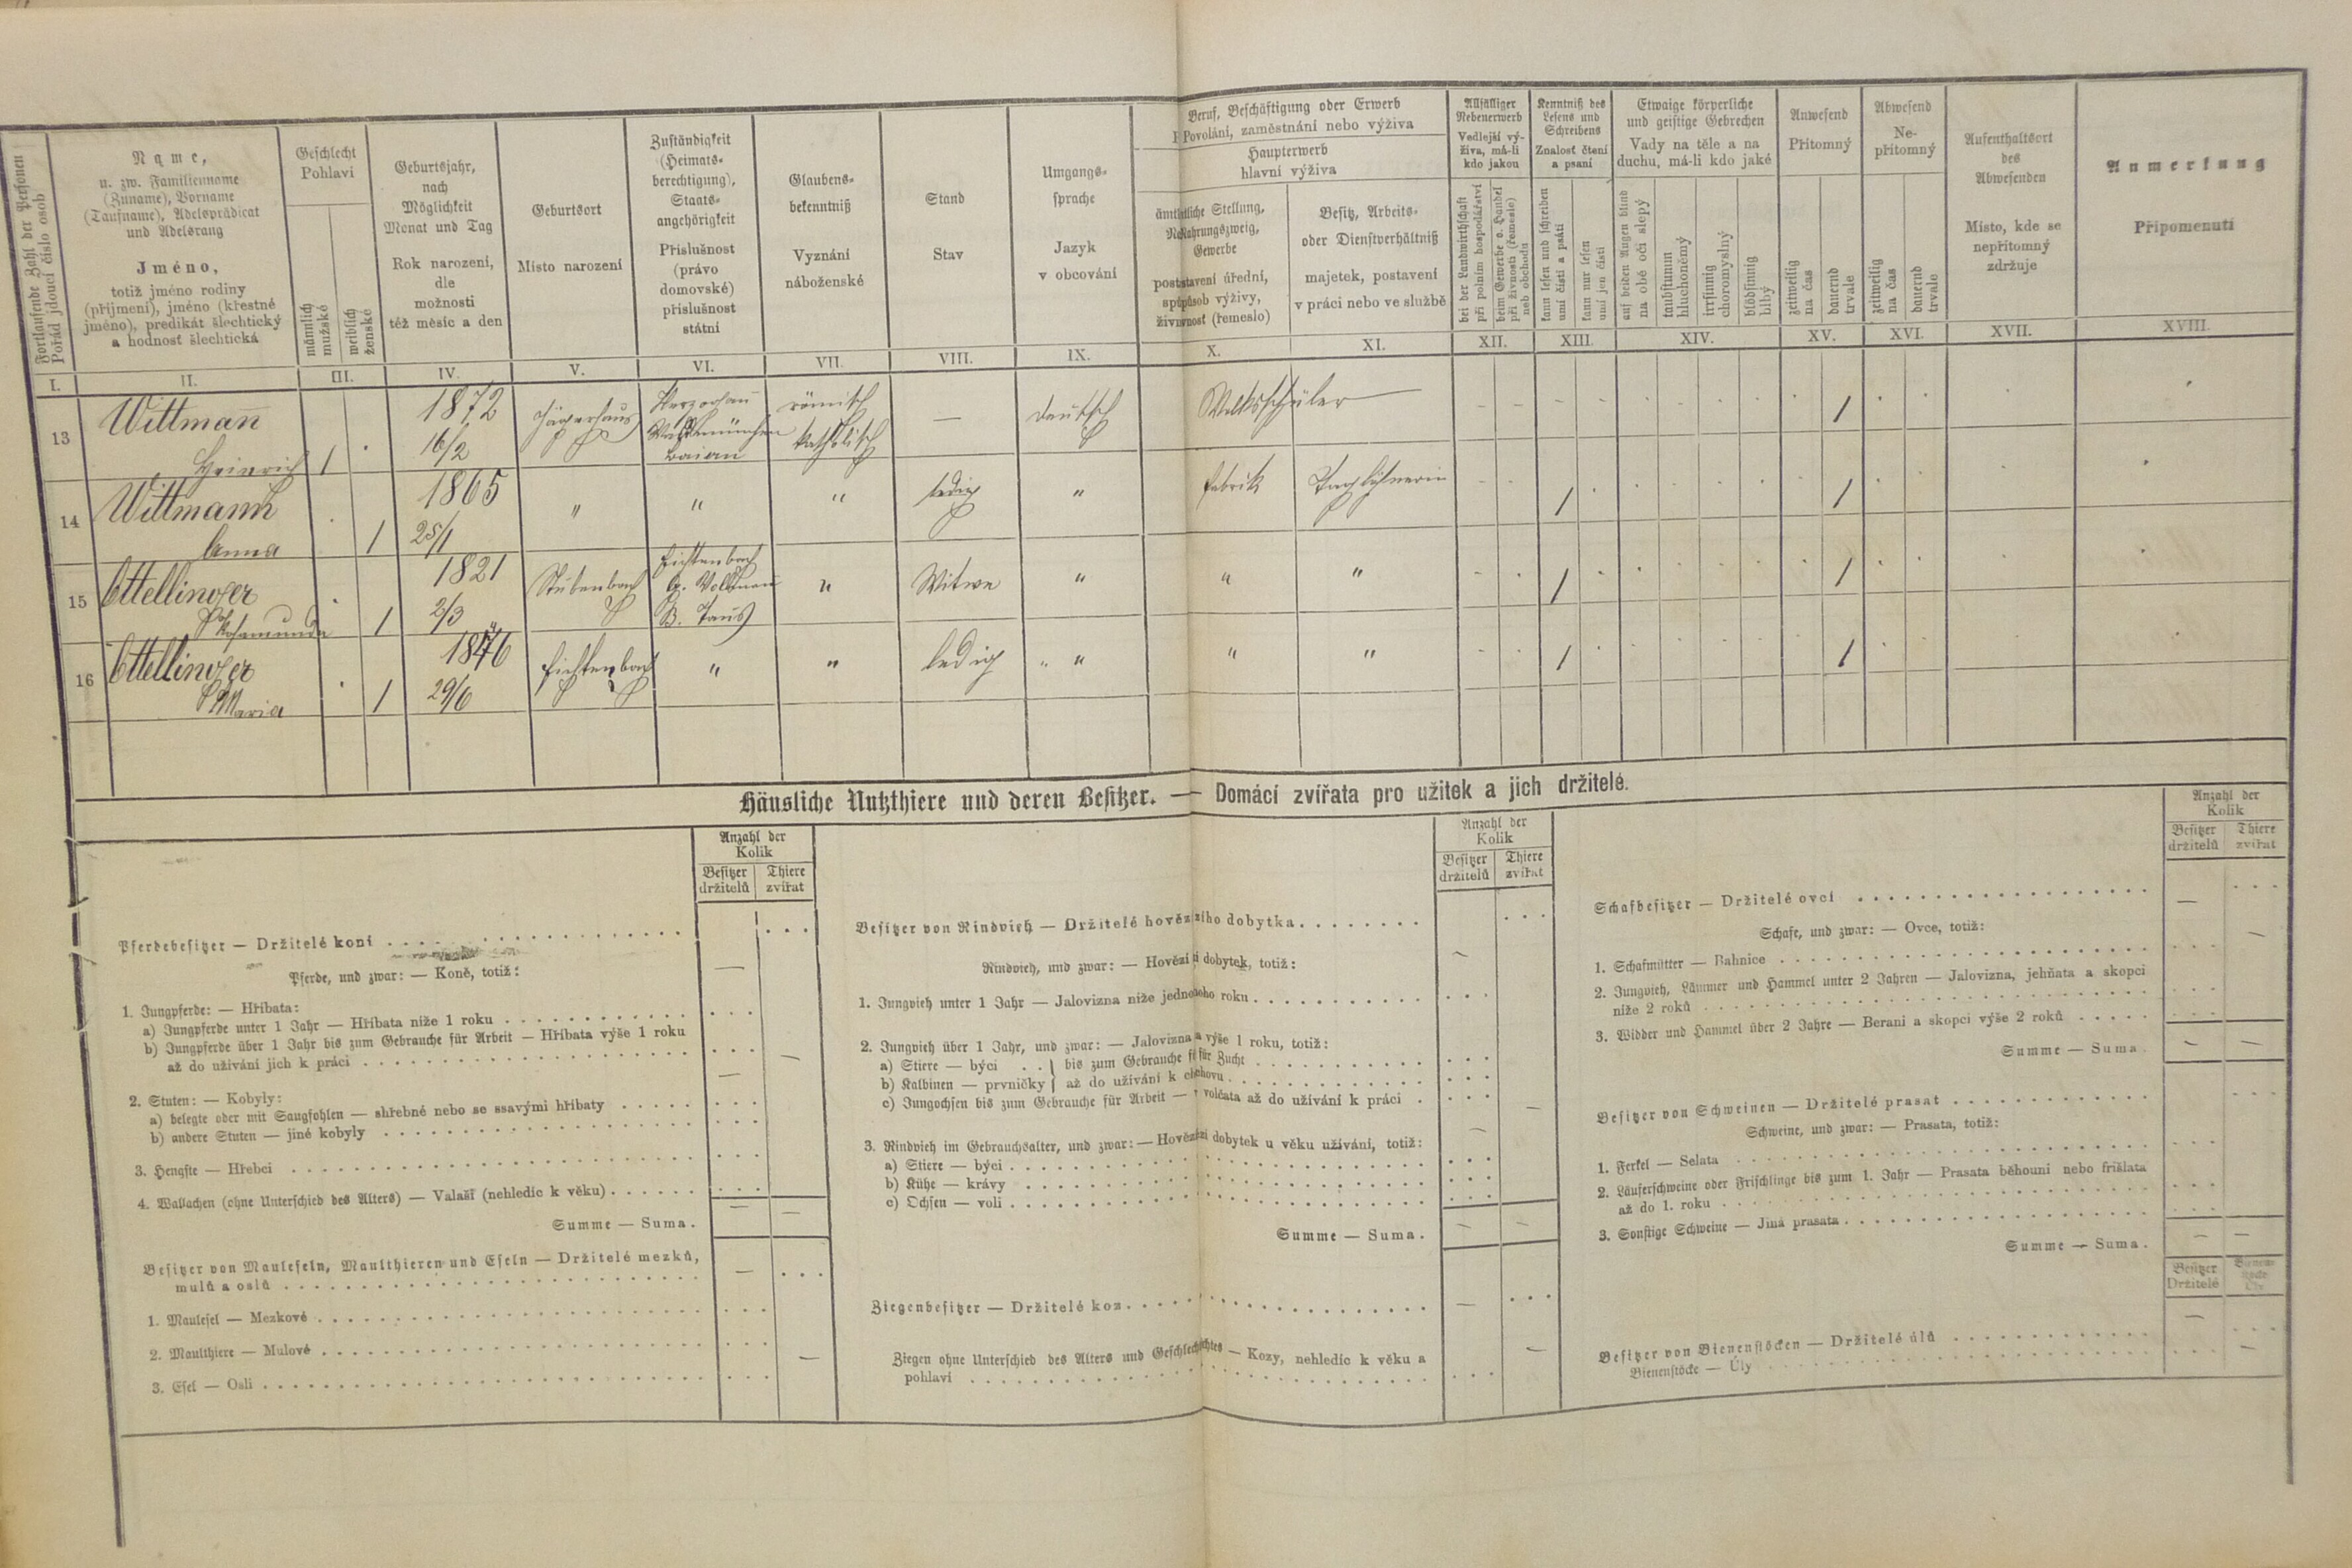 Fortlaufende Zahl der Personen
Pořád jdoucí číslo osob
Name,
u. zw. Familienname
(Zuname), Vorname
(Taufname), Adelsprädicat
und Adelsrang
Jméno,
totiž jméno rodiny
(příjmení), jméno (křestné
jméno), predikát šlechtický
a hodnosť šlechtická
Geschlecht
Pohlaví
männlich
mužské
weiblich
ženské
Geburtsjahr,
nach
Möglichkeit
Monat und Tag
Rok narození,
dle
možnosti
též měsíc a den
Geburtsort
Místo narození
Zuständigkeit
(Heimats-
berechtigung),
Staats-
angehörigkeit
Příslušnost
(právo
domovské)
příslušnost
státní
Glaubens-
bekenntniß
Vyznání
náboženské
Stand
Stav
Umgangs-
sprache
Jazyk
v obcování
Beruf, Beschäftigung oder Erwerb
Povolání, zaměstnání nebo výživa
Haupterwerb
hlavní výživa
ämtliche Stellung,
Nahrungszweig,
Gewerbe
postavení úřední,
způsob výživy,
živnosť (řemeslo)
Besitz, Arbeits-
oder Dienstverhältniß
majetek, postavení
v práci nebo ve službě
Allfälliger
Nebenerwerb
Vedlejší vý-
živa, má-li
kdo jakou
bei der Landwirthschaft
při polním hospodářství
beim Gewerbe o. Handel
při živnosti (řemeslo)
neb obchodu
Kenntniß des
Lesens und
Schreibens
Znalosť čtení
a psaní
kann lesen und schreiben
umí čísti a psáti
kann nur lesen
umí jen čísti
Etwaige körperliche
und geistige Gebrechen
Vady na těle a na
duchu, má-li kdo jaké
auf beiden Augen blind
na obě oči slepý
taubstumm
hluchoněmý
irrsinnig
choromyslný
blödsinnig
blbý
Anwesend
Přítomný
zeitweilig
na čas
dauernd
trvale
Abwesend
Ne-
přítomný
zeitweilig
na čas
dauernd
trvale
Aufenthaltsort
des
Abwesenden
Místo, kde se
nepřítomný
zdržuje
Anmerkung
Připomenutí
I. II. III. IV. V. VI. VII. VIII. IX. X. XI. XII. XIII. XIV. XV. XVI. XVII. XVIII.
13 Wittman̄ Heinrich 1 1872 16/2 Jägerhaus Waldmünchen Baiern römisch katholisch — deutsch Volksschüler 1
14 Wittmann Anna 1 1865 25/1 " " " ledig " Fabrik Taglöhnerin 1 1
15 Ettellinger Rosamunda 1 1821 2/3 Stubenbach Fichtenbach B. Taus " Witwe " " " 1 1
16 Ettellinger Maria 1 29/6 Fichtenbach " " ledig " " " 1 1
Häusliche Nutzthiere und deren Besitzer. — Domácí zvířata pro užitek a jich držitelé.
Anzahl der
Kolik
Besitzer
držitelů
Thiere
zvířat
Pferdebesitzer — Držitelé koní
Pferde, und zwar: — Koně, totiž:
1. Jungpferde: — Hříbata:
a) Jungpferde unter 1 Jahr — Hříbata níže 1 roku
b) Jungpferde über 1 Jahr bis zum Gebrauche für Arbeit — Hříbata výše 1 roku
až do užívání jich k práci
2. Stuten: — Kobyly:
a) belegte oder mit Saugfohlen — shřebné nebo se ssavými hříbaty
b) andere Stuten — jiné kobyly
3. Hengste — Hřebci
4. Wallachen (ohne Unterschied des Alters) — Valaši (nehledíc k věku)
Summe — Suma.
Besitzer von Mauleseln, Maulthieren und Eseln — Držitelé mezků,
mulů a oslů
1. Maulesel — Mezkové
2. Maulthiere — Mulové
3. Esel — Osli
Anzahl der
Kolik
Besitzer
držitelů
Thiere
zvířat
Besitzer von Rindvieh — Držitelé hovězího dobytka
Rindvieh, und zwar: — Hovězí dobytek, totiž:
1. Jungvieh unter 1 Jahr — Jalovizna níže jednoho roku
2. Jungvieh über 1 Jahr, und zwar: — Jalovizna výše 1 roku, totiž:
a) Stirre — býci . . } bis zum Gebrauche für Zucht
b) Kalbinen — prvničky } až do užívání k chovu
c) Jungochsen bis zum Gebrauche für Arbeit — volčata až do užívání k práci
3. Rindvieh im Gebrauchsalter, und zwar: — Hovězí dobytek u věku užívání, totiž:
a) Stiere — býci
b) Kühe — krávy
c) Ochsen — voli
Summe — Suma.
Ziegenbesitzer — Držitelé koz
Ziegen ohne Unterschied des Alters und Geschlechtes — Kozy, nehledíc k věku a
pohlaví
Anzahl der
Kolik
Besitzer
držitelů
Thiere
zvířat
Schafbesitzer — Držitelé ovcí
Schafe, und zwar: — Ovce, totiž:
1. Schafmütter — Bahnice
2. Jungvieh, Lämmer und Hammel unter 2 Jahren — Jalovizna, jehňata a skopci
níže 2 roků
3. Widder und Hammel über 2 Jahre — Berani a skopci výše 2 roků
Summe — Suma.
Besitzer von Schweinen — Držitelé prasat
Schweine, und zwar: — Prasata, totiž:
1. Ferkel — Selata
2. Läuferschweine oder Frischlinge bis zum 1. Jahr — Prasata běhouni nebo frišlata
až do 1. roku
3. Sonstige Schweine — Jiná prasata
Summe — Suma.
Besitzer
Držitelé
Besitzer von Bienenstöcken — Držitelé úlů
Bienenstöcke — Úly